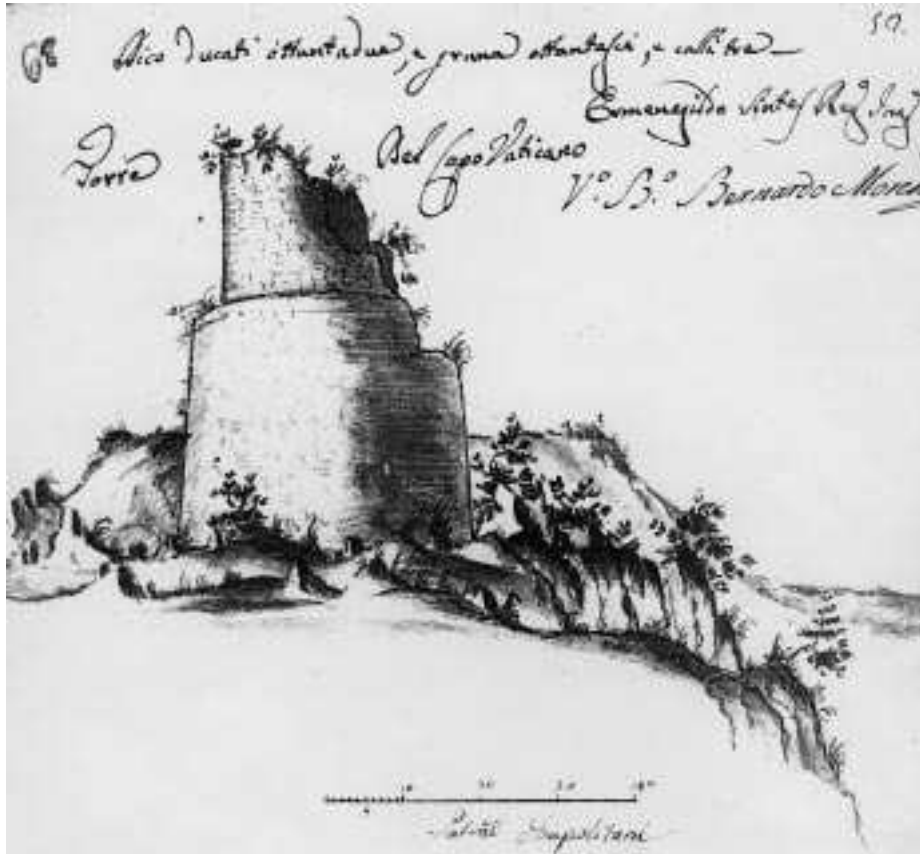 68 59.
Dico Ducati ottantadue, e grana ottantasei, e calli tre
Ermenegildo Sintes Reg.
Torre Del Capo Vaticano
V.º B.º Bernardo Moren
10 20 30
Palmi Napolitani